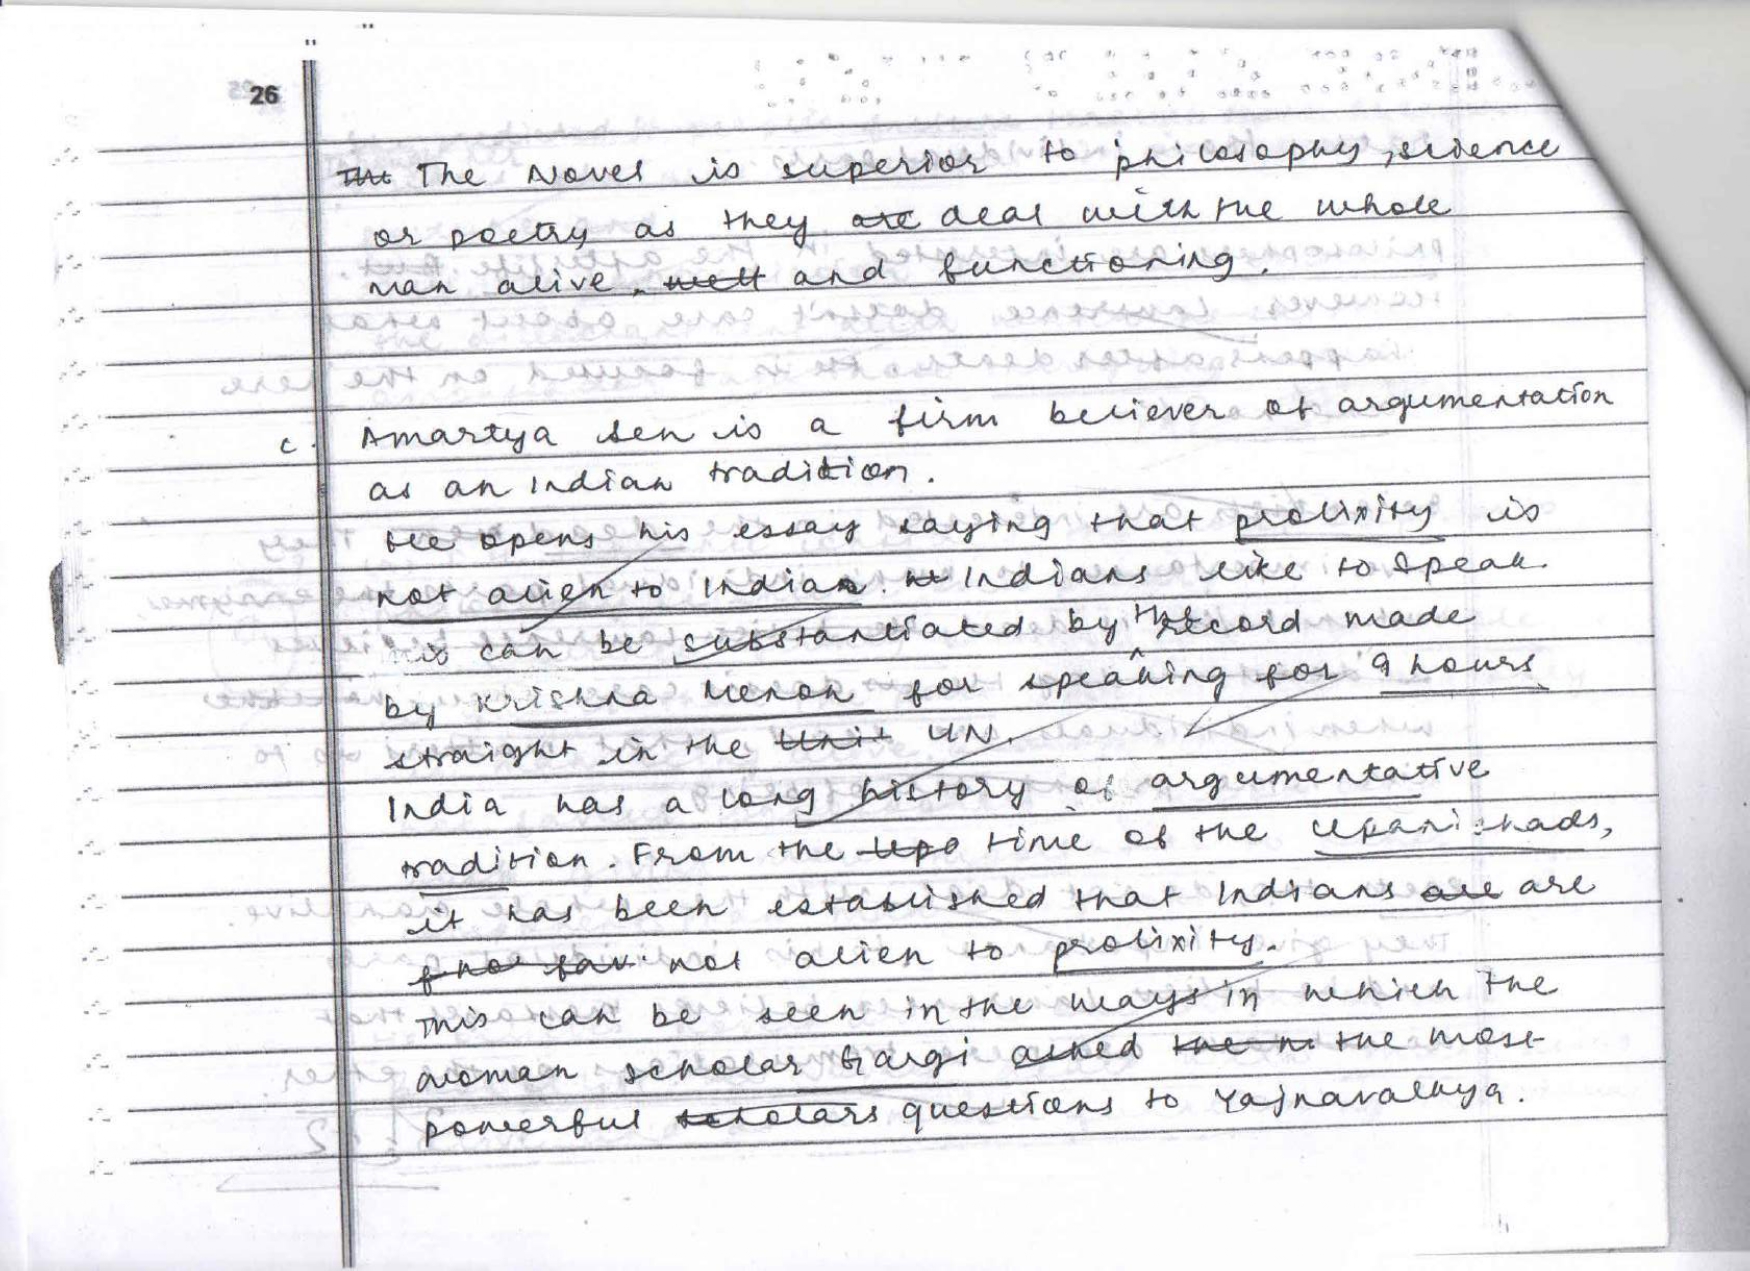 26
The Novel is superior to philosophy, science
or poetry as they are deal with the whole
man alive well and functioning.
c. Amartya Sen is a firm believer of argumentation
as an Indian tradition.
He opens his essay saying that prolixity is
not alien to Indian. Indians like to speak.
is can be substantiated by the record made
by Krishna Menon for speaking for 9 hours
straight in the Unit UN.
India has a long history of argumentative
tradition. From the Upa time of the Upanishads,
it has been established that Indians are are
not alien to prolixity.
This can be seen in the ways in which the
woman scholar Gargi asked the most
powerful scholars questions to Yajnavalkya.